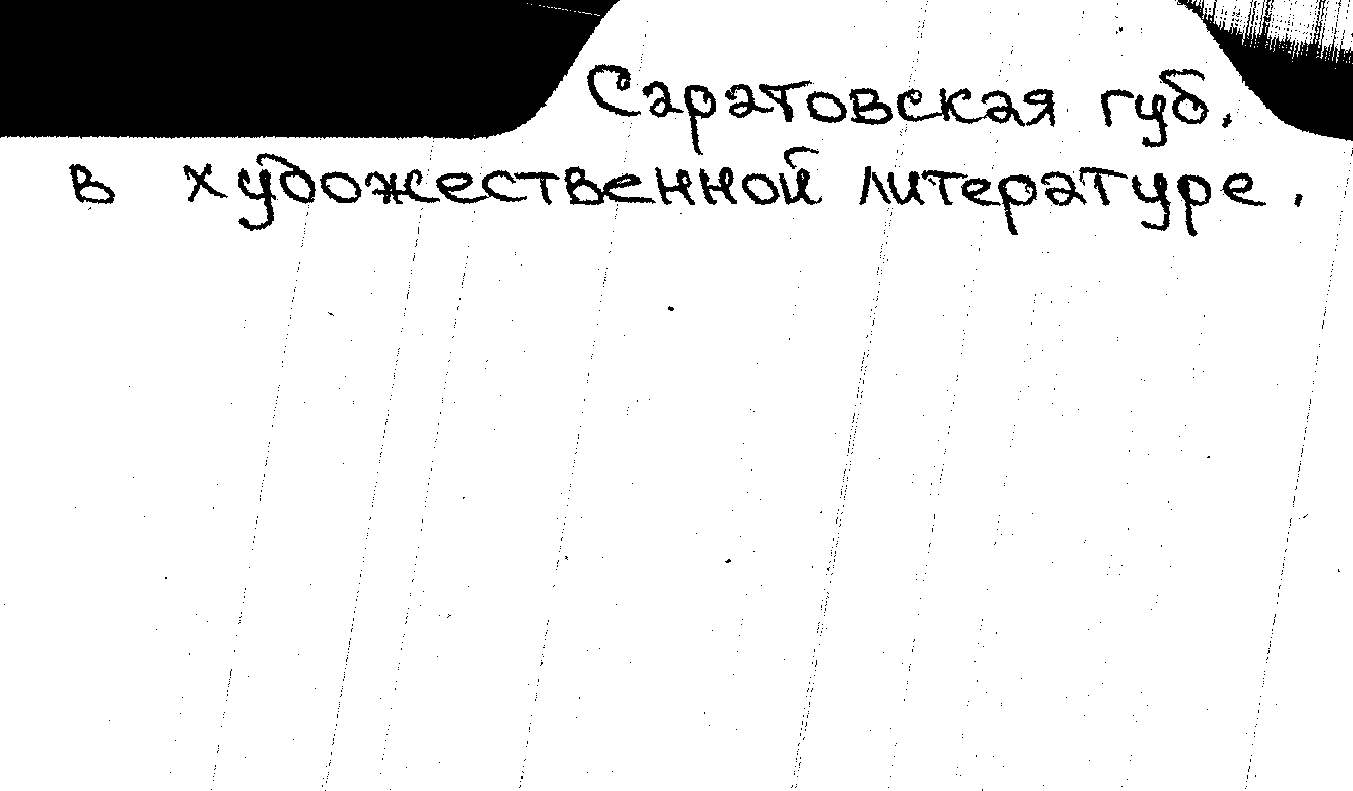 Саратовская губ.
в художественной литературе.